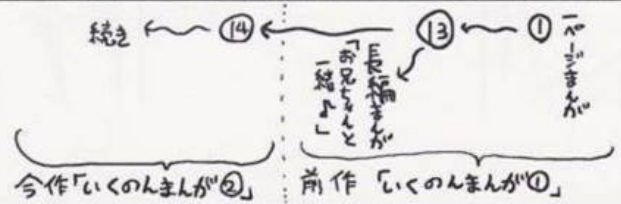 一ページまんが
①
⑬
長編まんが
「お兄ちゃんと
一緒♪」
⑭
続き
前作「いくのんまんが①」
今作「いくのんまんが②」